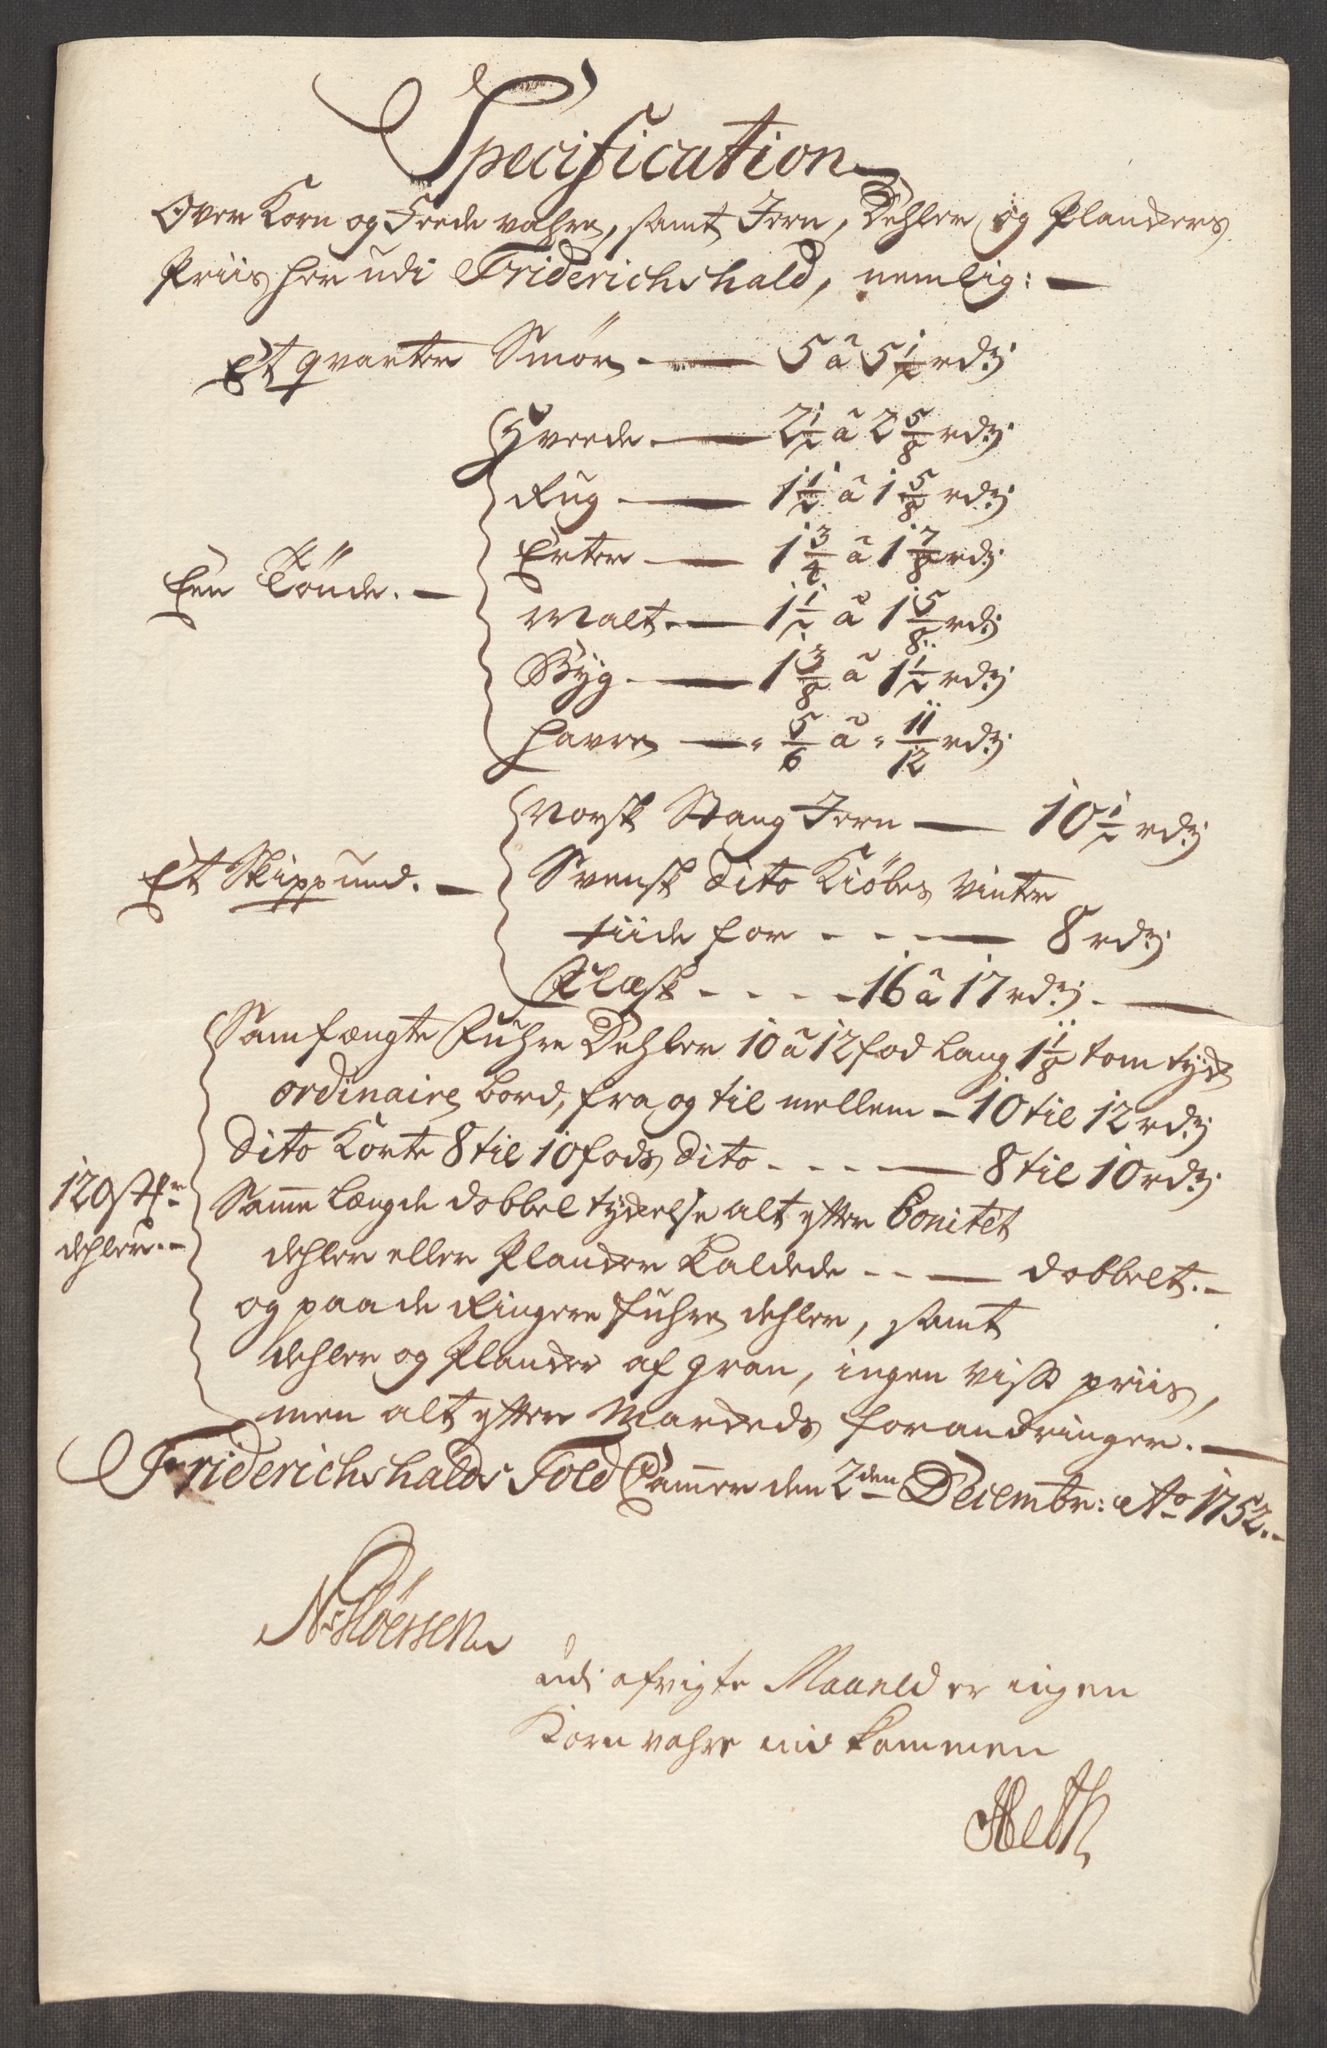 Specification
Over Korn og Feede vahre, samt Jern, Dehler og Planckers
Priis her udi Friderichshald, nemlig:
Et qvarter Smør 5 â 5 1/2 rdr:
Hvede 2 1/2 â 2 5/8 rdr:
Rug 1 1/2 â 1 5/8 rdr:
Erter 1 3/4 â 1 7/8 rdr:
Een Tönde. Malt 1 1/2 â 1 5/8 rdr:
Byg 1 3/8 â 1 1/2 rdr:
Havre " 5/6 â " 11/12 rdr:
Norsk Stang Jern 10 1/2 rdr:
Et Skippund. Svensk dito Kiöbes vinter
tiide for - - - 8 rdr:
Flæsk - - - - 16 â 17 rdr:
Samfængte Fuhre Dehler 10 â 12 fod lang 1 1/8 tom tyck
ordinaire bord, fra og til mellem - 10 til 12 rdr:
dito Korte 8 til 10 fods dito - - - - 8 til 10 rdr:
120 st
dehler. Samme Længde dobbel tyckelse alt efter bonitet
dehler eller Plancker kaldede - - - dobbelt.
og paa de Ringere fuhre dehler, samt
dehler og Plancker af gran, ingen viss priis,
men alt efter Marckeds forandringer.
Friderichshalds Told Cammer den 2den Decembr: Ao 1752.
udi afvigte Maaned er ingen
Korn vahre ind kommen